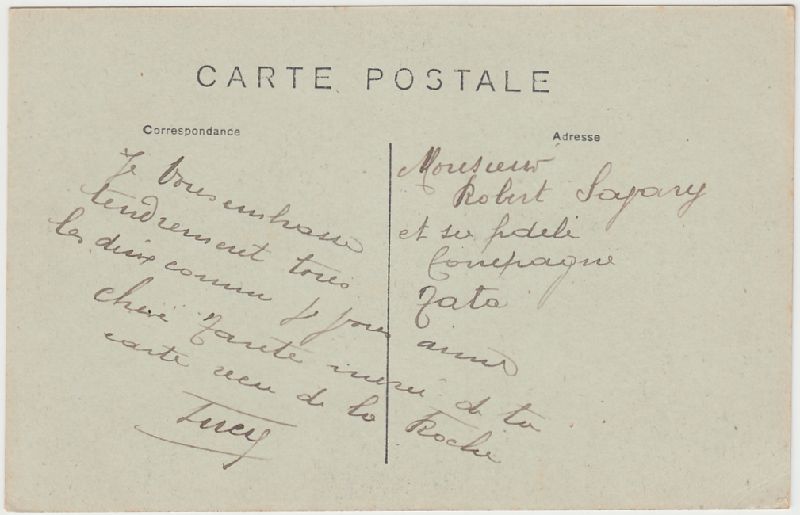 CARTE POSTALE
Correspondance
Je vous embrasse
tendrement tous
les deux comme je vous aime
chère merci de ta
carte reçu de la Roche
Lucy
Adresse
Monsieur
Robert
et sa fidèle
Compagne
Tata